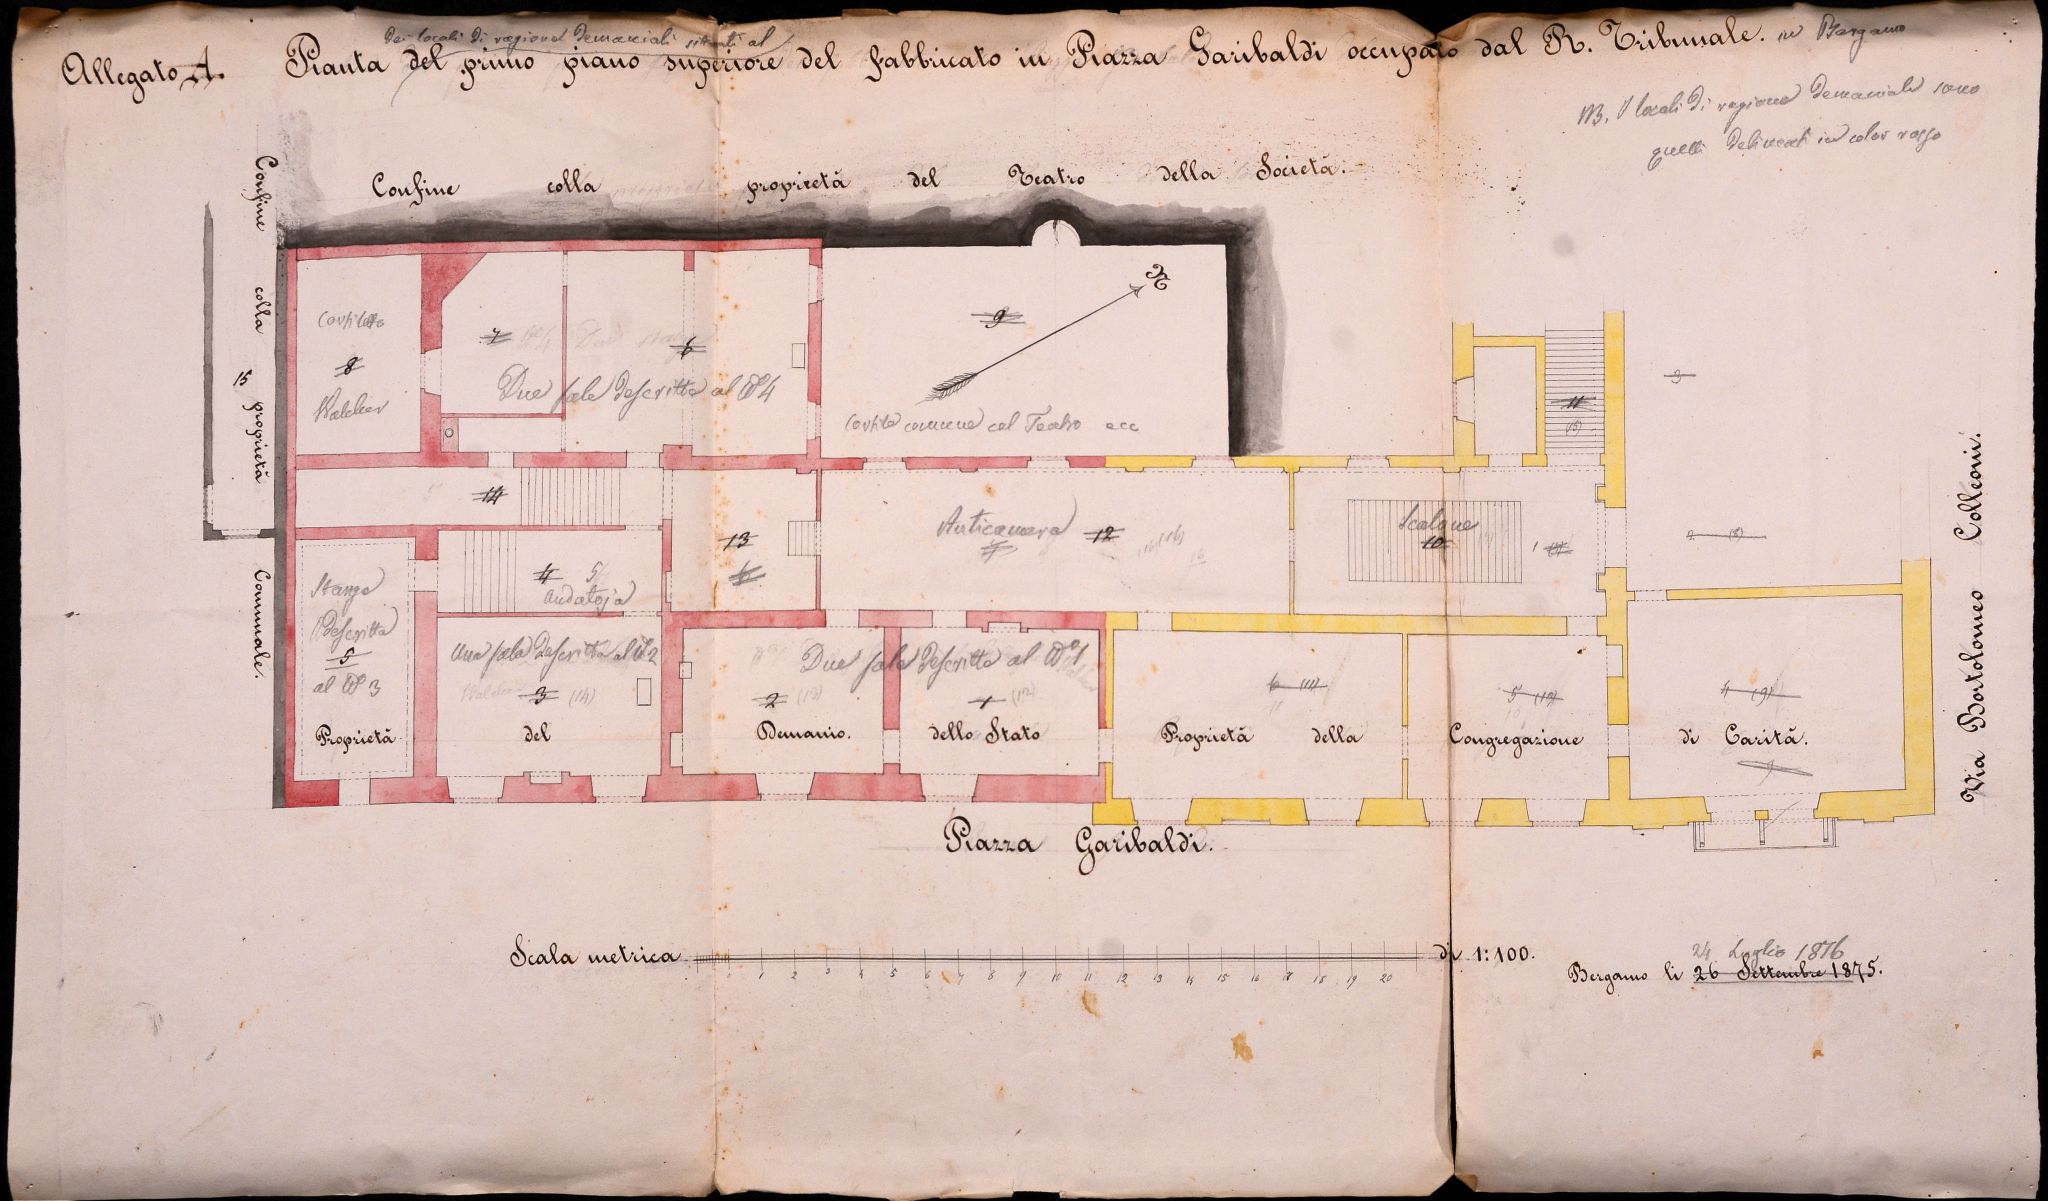 dei locali di ragione demaniali situati al
Allegato A. Pianta del primo piano superiore del fabbricato in Piazza Garibaldi occupato dal R. Tribunale. in Bergamo
NB. I locali di ragione demaniale sono
quelli delineati in color rosso
Confine colla proprietà del Teatro della Società.
Confine colla proprietà Comunale.
15
Cortiletto
8
Walcher
7
6
Due sale descritte al N° 4
9
Cortile comune col Teatro ecc
11
3
14
13
Anticamera
12
Scalone
10
4 5
andatoja
Stanza
descritta
5
al N° 3
Una sala descritta al N° 2
3 (14)
Due sale descritte al N° 1
2 (13)
1 (12)
6 (11)
5 (12)
4 (9)
Proprietà del Demanio. dello Stato
Proprietà della Congregazione di Carità.
Via Bartolomeo Colleoni.
Piazza Garibaldi.
Scala metrica di 1:100.
1 2 3 4 5 6 7 8 9 10 11 12 13 14 15 16 17 18 19 20
24 Luglio 1876
Bergamo li 26 Settembre 1875.